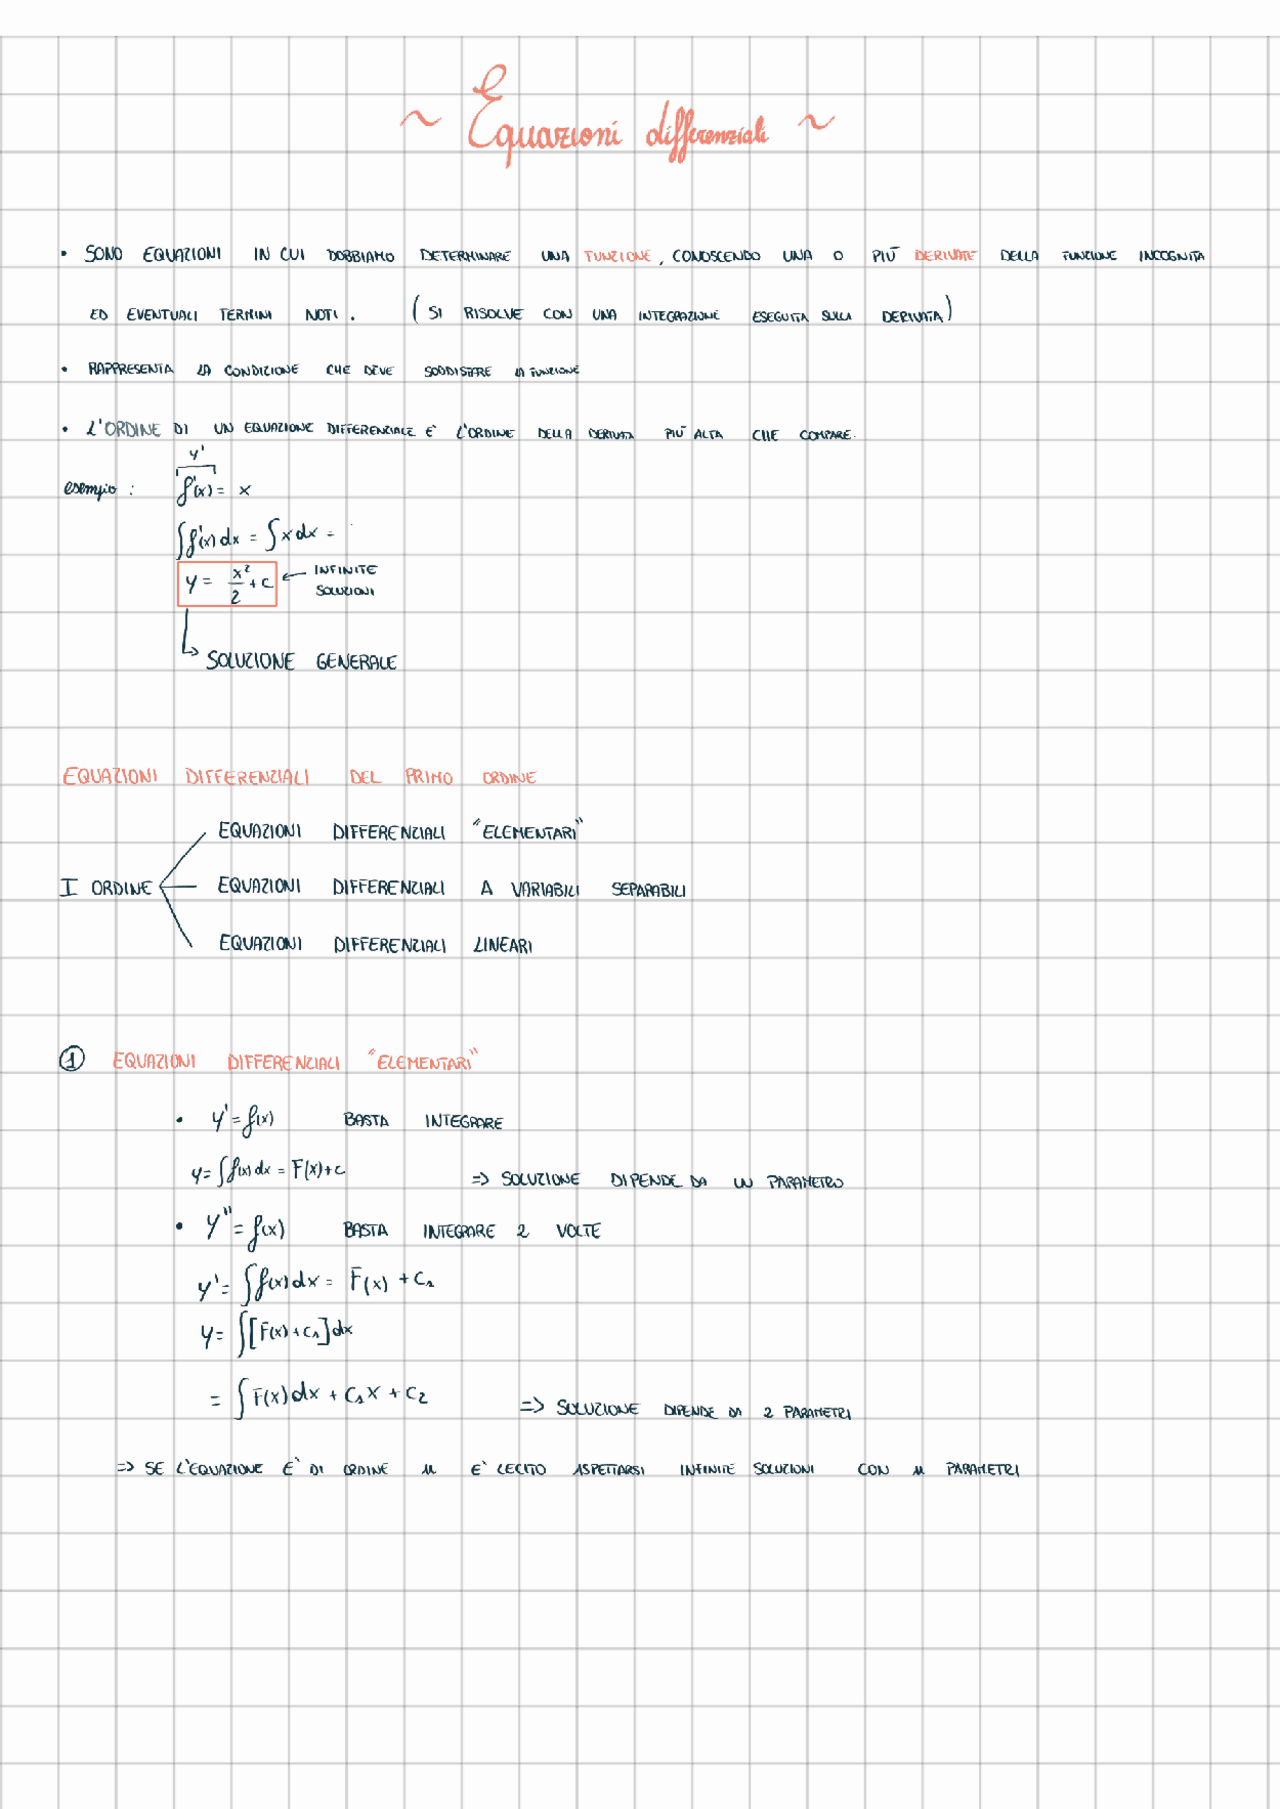 ~ Equazioni differenziali ~
• SONO EQUAZIONI IN CUI DOBBIAMO DETERMINARE UNA FUNZIONE, CONOSCENDO UNA O PIÙ DERIVATE DELLA FUNZIONE INCOGNITA
ED EVENTUALI TERMINI NOTI. (SI RISOLVE CON UNA INTEGRAZIONE ESEGUITA SULLA DERIVATA)
• RAPPRESENTA LA CONDIZIONE CHE DEVE SODDISFARE LA FUNZIONE
• L'ORDINE DI UN EQUAZIONE DIFFERENZIALE È L'ORDINE DELLA DERIVATA PIÙ ALTA CHE COMPARE.
y'
esempio : f'(x) = x
∫f'(x)dx = ∫xdx =
y = x²/2 + c ← INFINITE SOLUZIONI
↳ SOLUZIONE GENERALE
EQUAZIONI DIFFERENZIALI DEL PRIMO ORDINE
EQUAZIONI DIFFERENZIALI "ELEMENTARI"
I ORDINE EQUAZIONI DIFFERENZIALI A VARIABILI SEPARABILI
EQUAZIONI DIFFERENZIALI LINEARI
① EQUAZIONI DIFFERENZIALI "ELEMENTARI"
• y' = f(x) BASTA INTEGRARE
y = ∫f(x)dx = F(x)+c => SOLUZIONE DIPENDE DA UN PARAMETRO
• y'' = f(x) BASTA INTEGRARE 2 VOLTE
y' = ∫f(x)dx = F(x) + c₁
y = ∫[F(x)+c₁]dx
= ∫F(x)dx + c₁x + c₂ => SOLUZIONE DIPENDE DA 2 PARAMETRI
=> SE L'EQUAZIONE È DI ORDINE n È LECITO ASPETTARSI INFINITE SOLUZIONI CON n PARAMETRI